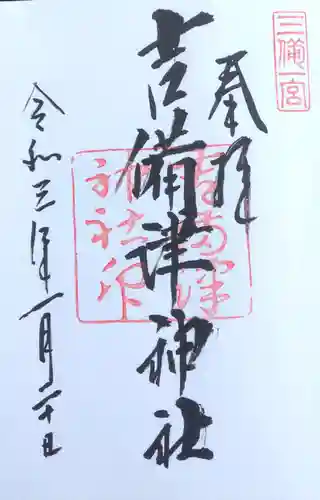 三備一宮
奉拝
吉備津神社
吉備津神社印
令和三年一月二十日